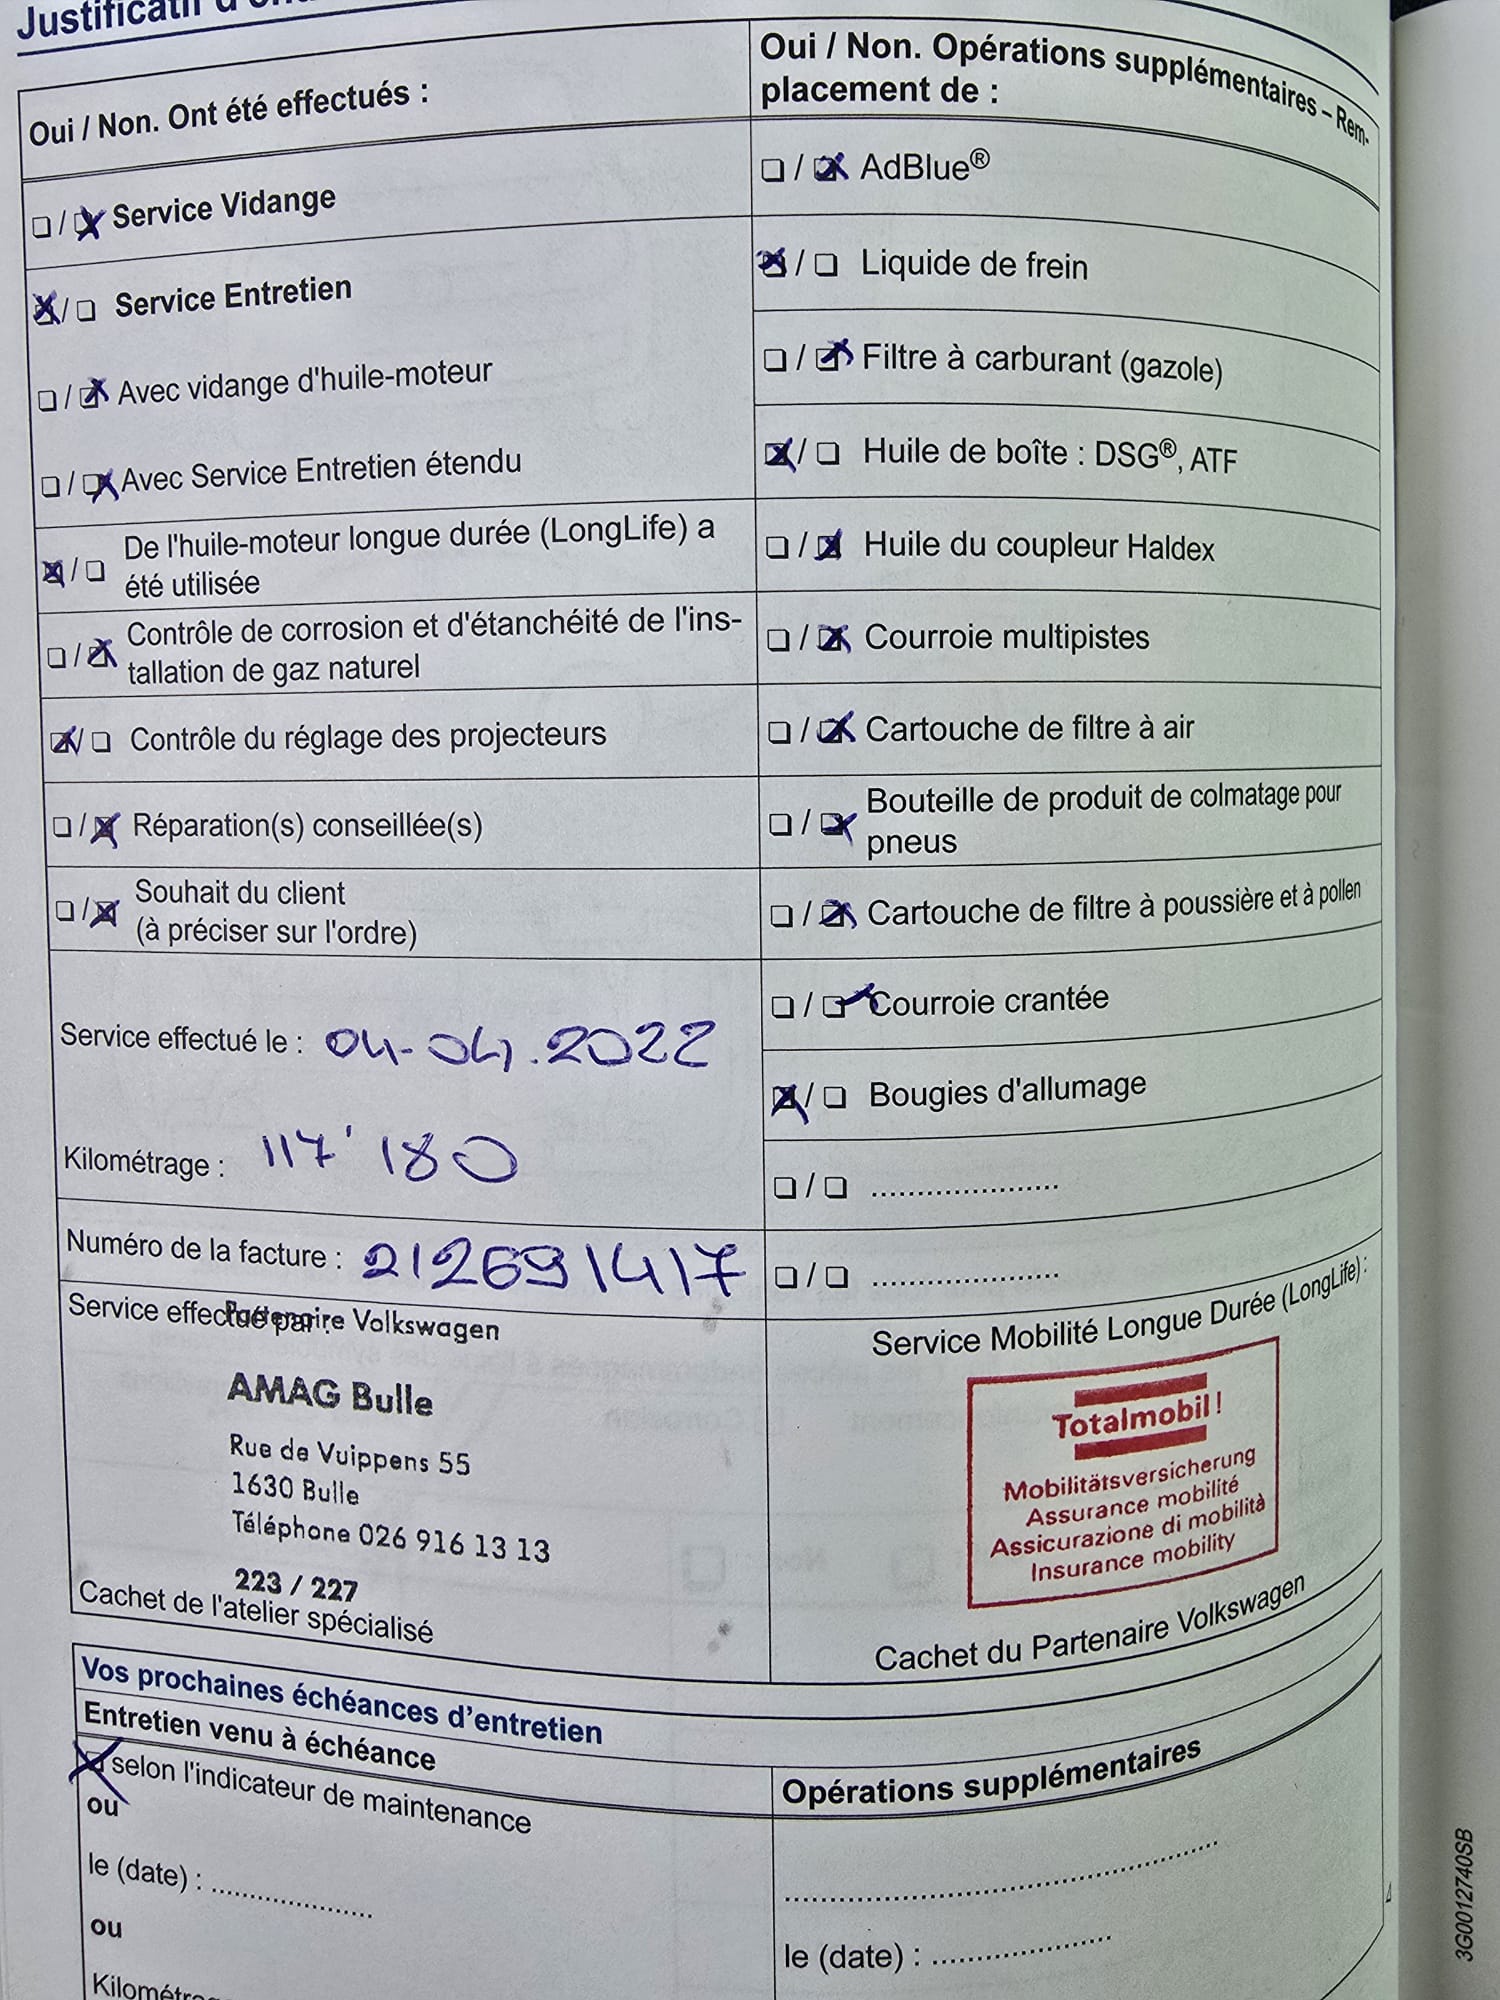 Justificatif
Oui / Non. Ont été effectués :
☐ / ☒ Service Vidange
☒ / ☐ Service Entretien
☐ / ☒ Avec vidange d'huile-moteur
☐ / ☒ Avec Service Entretien étendu
☒ / ☐ De l'huile-moteur longue durée (LongLife) a
été utilisée
☐ / ☒ Contrôle de corrosion et d'étanchéité de l'ins-
tallation de gaz naturel
☒ / ☐ Contrôle du réglage des projecteurs
☐ / ☒ Réparation(s) conseillée(s)
☐ / ☒ Souhait du client
(à préciser sur l'ordre)
Service effectué le : 04.04.2022
Kilométrage : 117'180
Numéro de la facture : 212691417
Oui / Non. Opérations supplémentaires – Rem-
placement de :
☐ / ☒ AdBlue®
☒ / ☐ Liquide de frein
☐ / ☒ Filtre à carburant (gazole)
☒ / ☐ Huile de boîte : DSG®, ATF
☐ / ☒ Huile du coupleur Haldex
☐ / ☒ Courroie multipistes
☐ / ☒ Cartouche de filtre à air
☐ / ☒ Bouteille de produit de colmatage pour
pneus
☐ / ☒ Cartouche de filtre à poussière et à pollen
☐ / ☒ Courroie crantée
☒ / ☐ Bougies d'allumage
☐ / ☐ .....................
☐ / ☐ .....................
Service effectué par :
Partenaire Volkswagen
AMAG Bulle
Rue de Vuippens 55
1630 Bulle
Téléphone 026 916 13 13
223 / 227
Cachet de l'atelier spécialisé
Service Mobilité Longue Durée (LongLife) :
Totalmobil!
Mobilitätsversicherung
Assurance mobilité
Assicurazione di mobilità
Insurance mobility
Cachet du Partenaire Volkswagen
Vos prochaines échéances d'entretien
Entretien venu à échéance
☒ selon l'indicateur de maintenance
ou
le (date) : ..................
ou
Kilométra
Opérations supplémentaires
................................................
le (date) : ....................
3G0012740SB